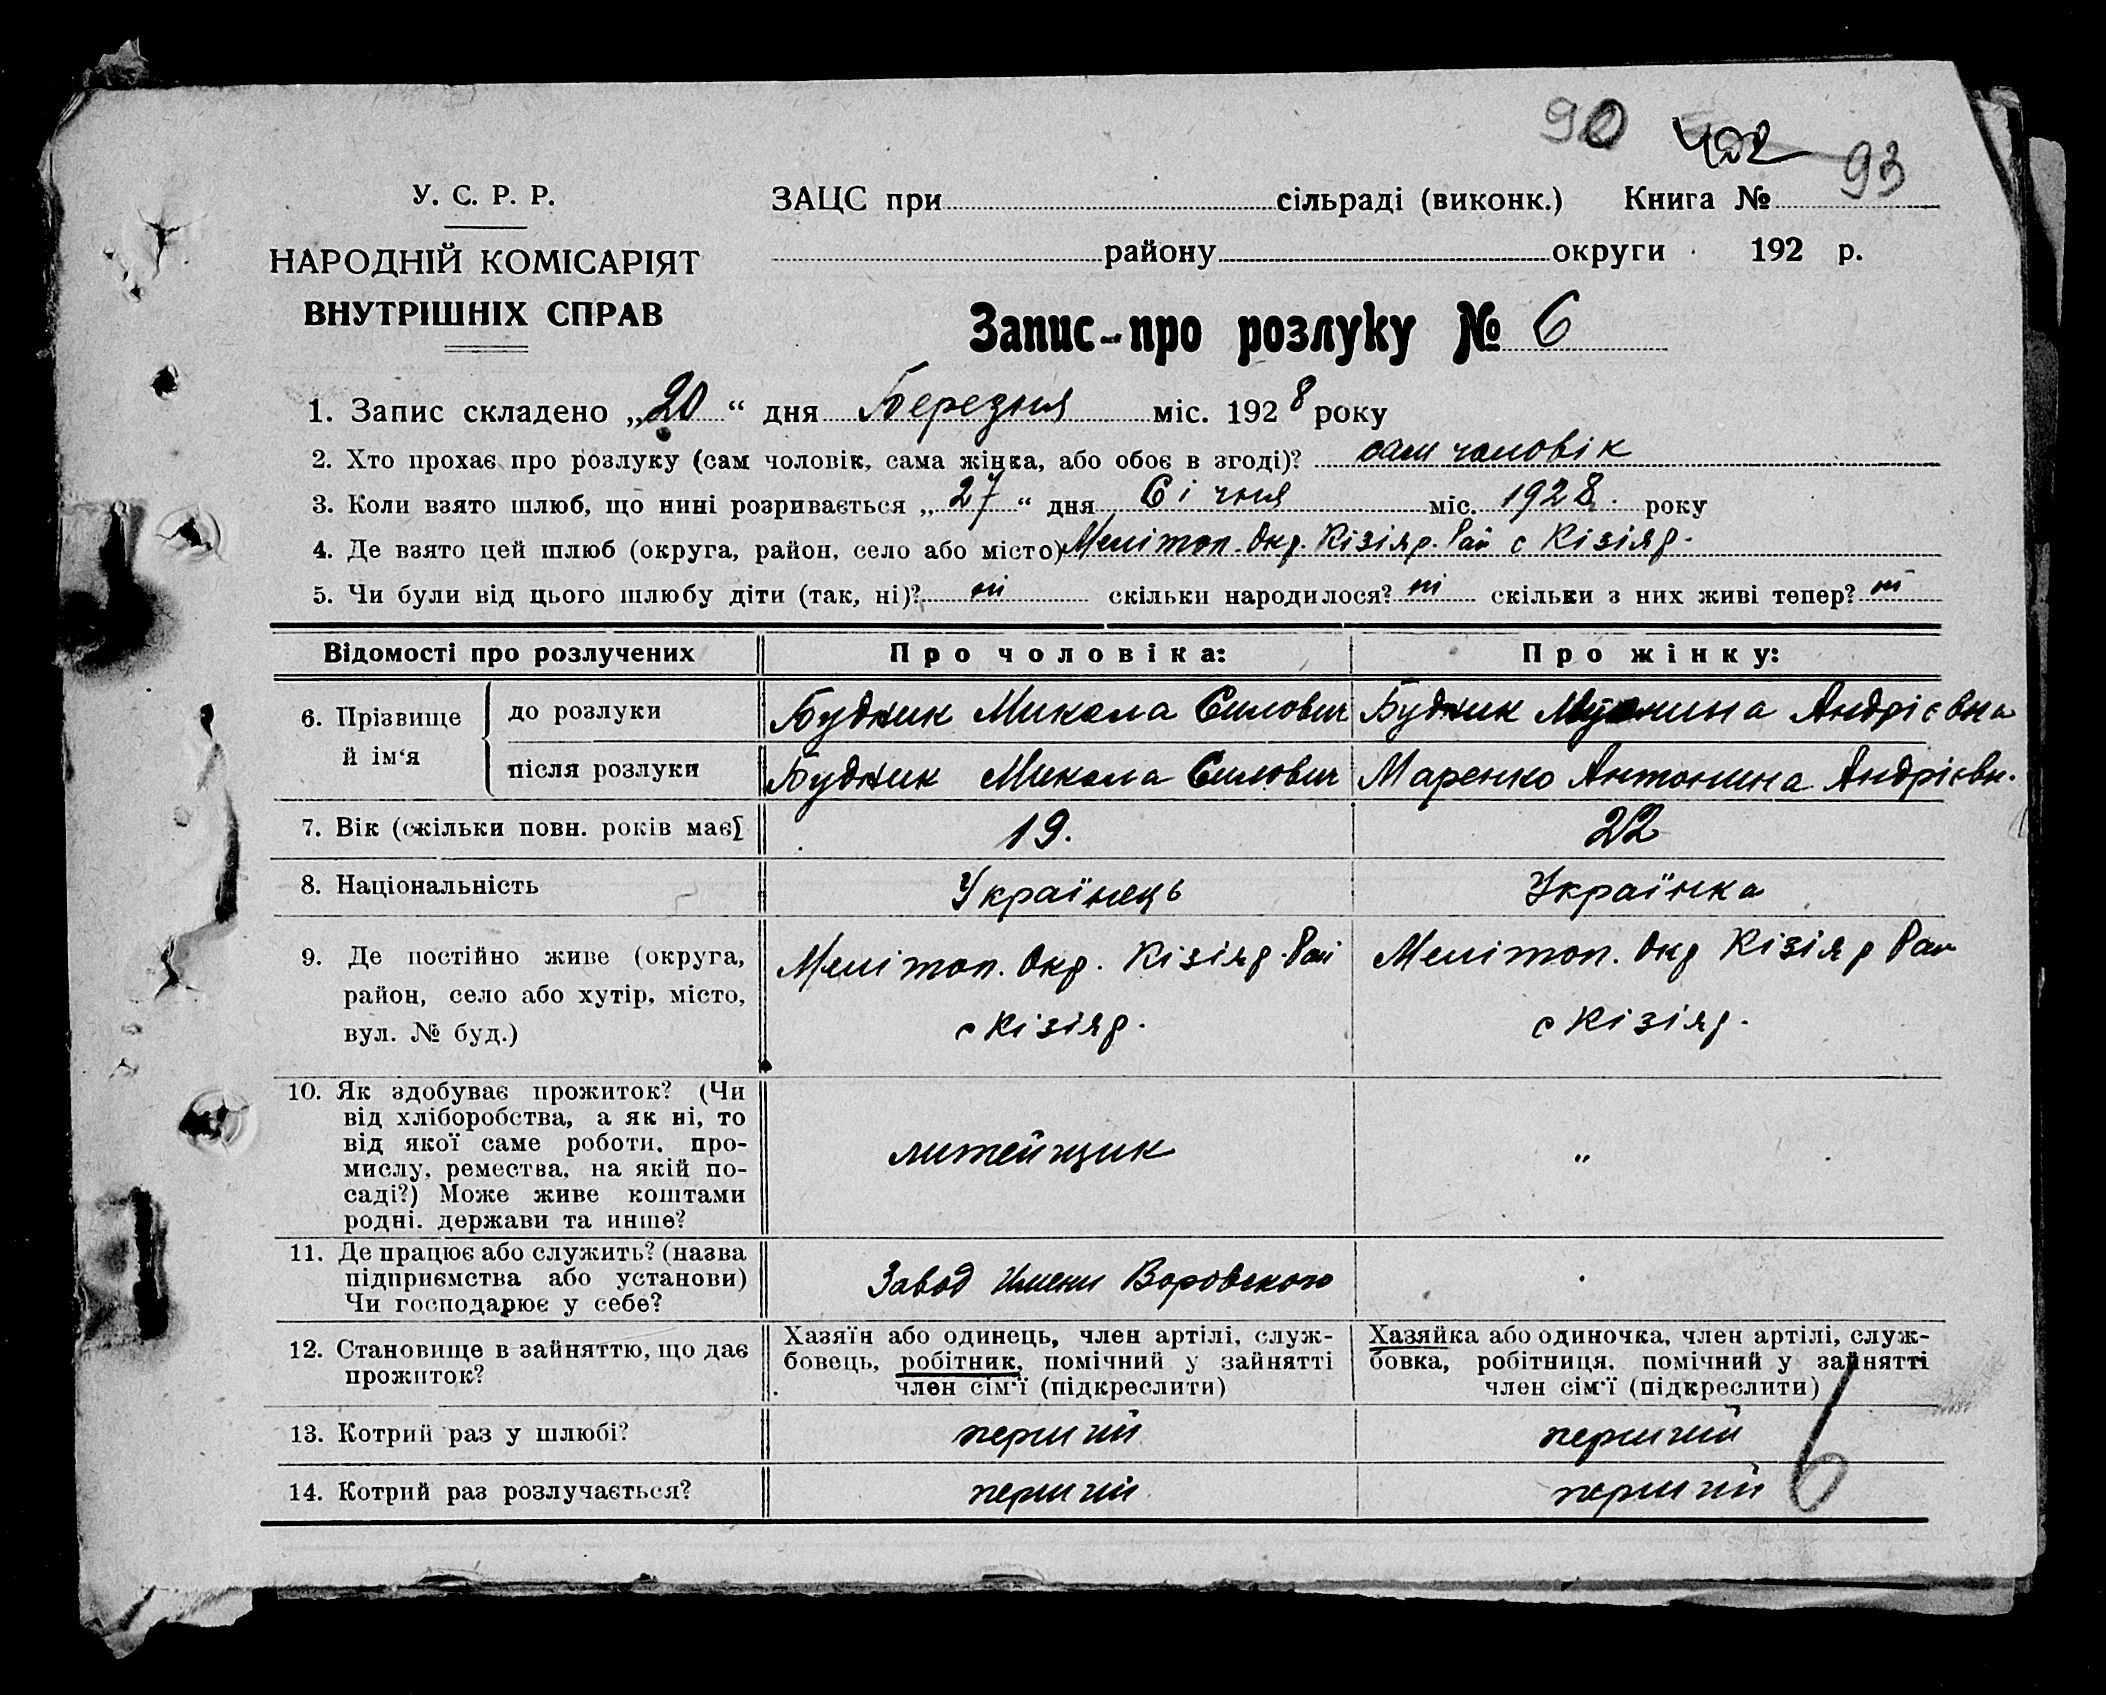 90 93
У. С. Р. Р.
НАРОДНІЙ КОМІСАРІЯТ
ВНУТРІШНІХ СПРАВ
ЗАЦС при сільраді (виконк.) Книга №
району округи 192 р.
Запис про розлуку № 6
1. Запис складено „20“ дня Березня міс. 1928 року
2. Хто прохає про розлуку (сам чоловік, сама жінка, або обоє в згоді)? сам чоловік
3. Коли взято шлюб, що нині розривається „27“ дня Січня міс. 1928. року
4. Де взято цей шлюб (округа, район, село або місто) Мелітоп. Окр. Кізіяр. Рай с Кізіяр.
5. Чи були від цього шлюбу діти (так, ні)? ні скільки народилося? ні скільки з них живі тепер? ні
Відомості про розлучених Про чоловіка: Про жінку:
6. Прізвище й ім‘я
до розлуки Будник Микола Силович Будник Андрієвна
після розлуки Будник Микола Силович Маренко Антонина Андрієвн.
7. Вік (скільки повн. років має[ 19. 22
8. Національність Українець Українка
9. Де постійно живе (округа,
район, село або хутір, місто,
вул. № буд.)
Мелітоп. Окр. Кізіяр. Рай
с Кізіяр.
Мелітоп. Окр Кізіяр Рай
с Кізіяр.
10. Як здобуває прожиток? (Чи
від хліборобства, а як ні, то
від якої саме роботи, про-
мислу, ремества, на якій по-
саді?) Може живе коштами
родні. держави та инше?
литейщик "
11. Де працює або служить? (назва
підприємства або установи)
Чи господарює у себе?
Завод Имени Воровского
12. Становище в зайняттю, що дає
прожиток?
Хазяїн або одинець, член артілі, служ-
бовець, робітник, помічний у зайнятті
член сім‘ї (підкреслити)
Хазяйка або одиночка, член артілі, служ-
бовка, робітниця, помічний у зайнятті
член сім‘ї (підкреслити)
13. Котрий раз у шлюбі? перший перший
14. Котрий раз розлучається? перший перший
6